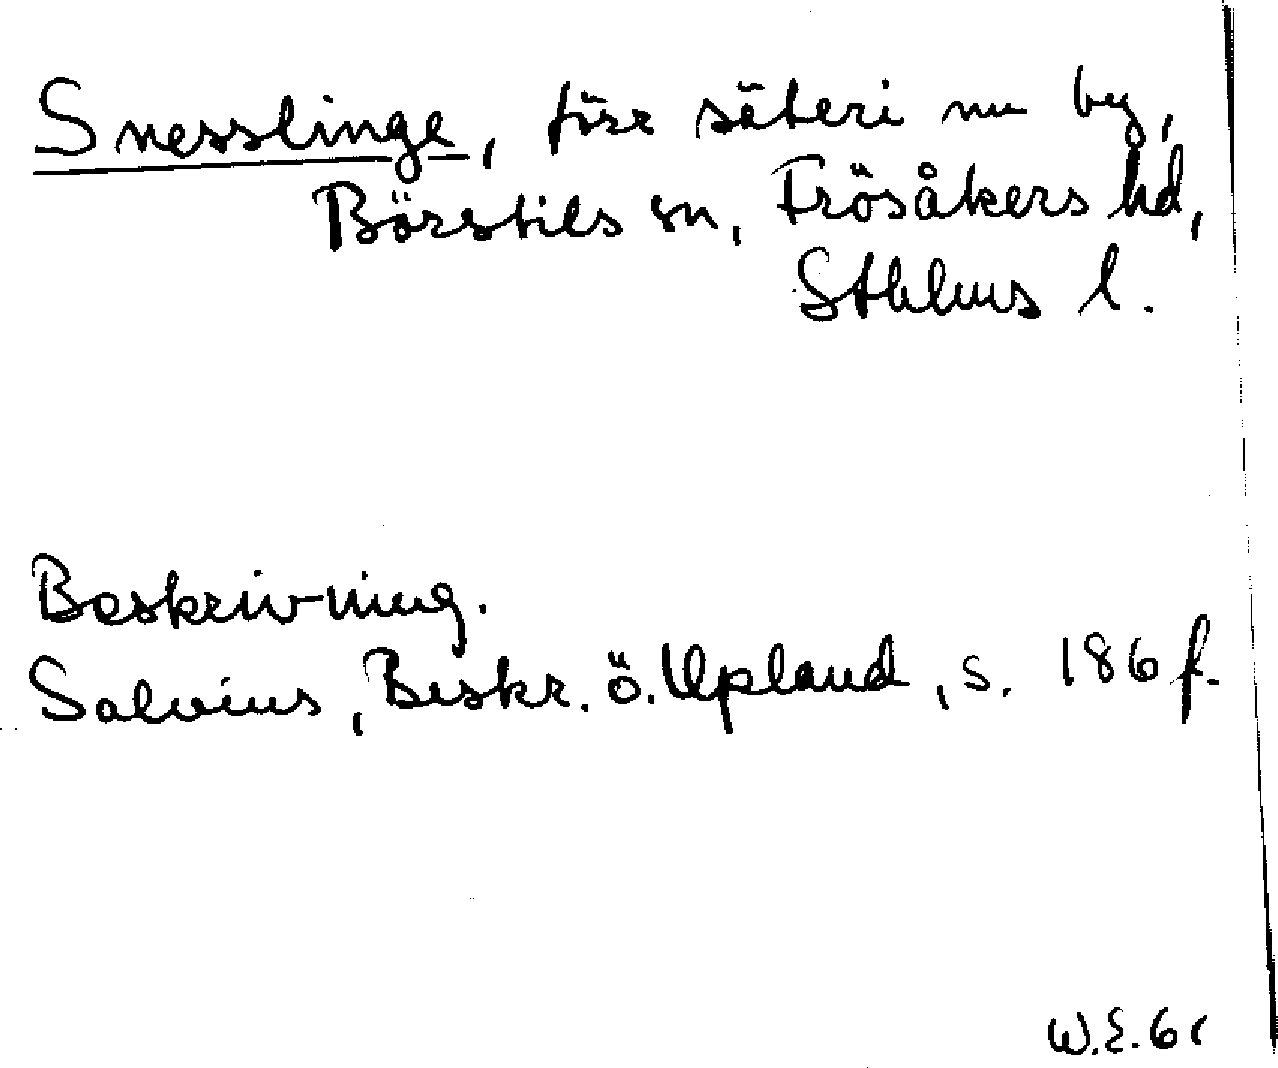 Snesslinge, förr säteri nu by,
Börstils sn, Frösåkers hd,
Sthlms l.
Beskrivning.
Salvius, Beskr. ö. Upland, s. 186 f.
W.E. 61